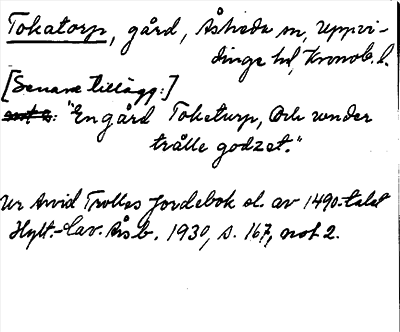 Tokatorp, gård, Åsheda sn, Uppvi-
dinge hd, Kronob. l.
[Senare tillägg:]
"En gård Toketurp, Och under
trålle godzet."
Ur Arvid Trolles Jordebok sl. av 1490-talet
Hylt.-Cav. Årsb. 1930, s. 167, not 2.